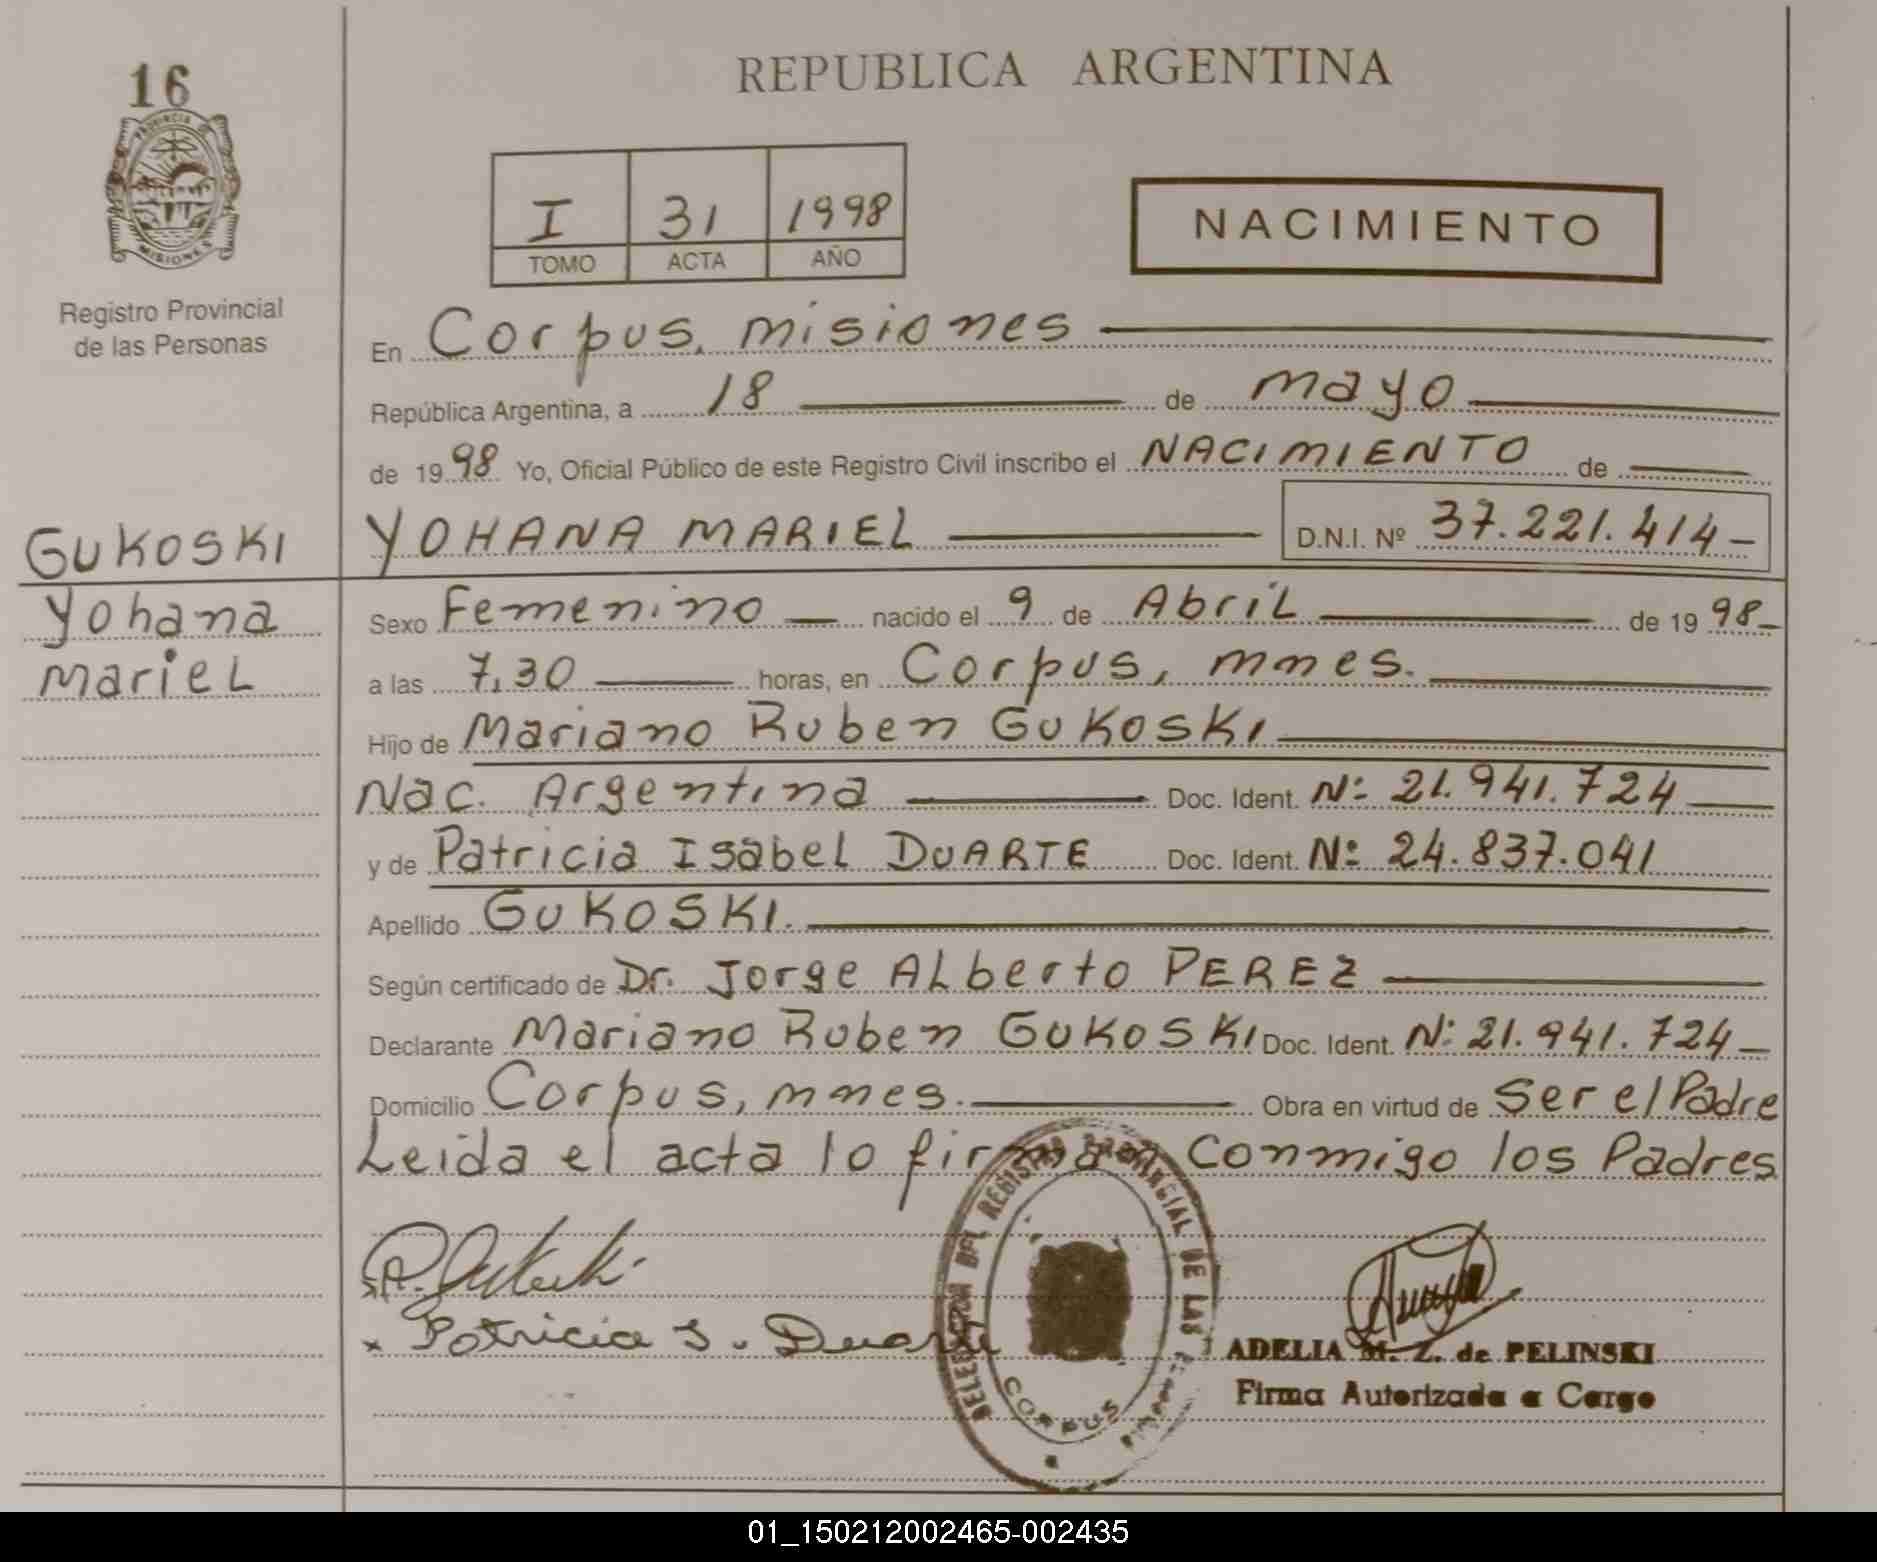 16
PROVINCIA DE
MISIONES
Registro Provincial
de las Personas
GUKOSKI
Yohana
Mariel
REPUBLICA ARGENTINA
I 31 1998
TOMO ACTA AÑO
NACIMIENTO
En Corpus, misiones
República Argentina, a 18 de mayo
de 1998 Yo, Oficial Público de este Registro Civil inscribo el NACIMIENTO de
YOHANA MARIEL D.N.I. Nº 37.221.414
Sexo Femenino nacido el 9 de Abril de 1998
a las 7,30 horas, en Corpus, mnes.
Hijo de Mariano Ruben GUKOSKI
Nac. Argentina Doc. Ident. Nº 21.941.724
y de Patricia Isabel DUARTE Doc. Ident. Nº 24.837.041
Apellido GUKOSKI.
Según certificado de Dr. Jorge Alberto PEREZ
Declarante Mariano Ruben GUKOSKI Doc. Ident. Nº 21.941.724
Domicilio Corpus, mnes. Obra en virtud de Ser el Padre
Leida el acta lo firman Conmigo los Padres
Patricia I. Duarte
DELEGACION DEL REGISTRO PROVINCIAL DE LAS PERSONAS
CORPUS
MISIONES
ADELIA M. Z. de PELINSKI
Firma Autorizada a Cargo
01_150212002465-002435